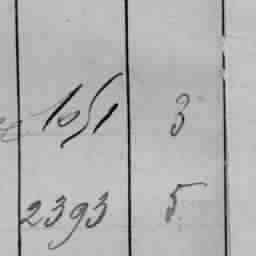 1051 3
2393 5